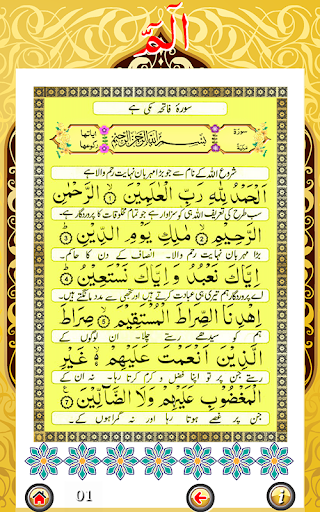 الٓمّٓ
سورۃ فاتحہ مکی ہے
سورة
مدنية
بِسْمِ اللهِ الرَّحْمٰنِ الرَّحِيْمِ
اياتها
ركوعها
شروع اللہ کے نام سے جو بڑا مہربان نہایت رحم والا ہے
اَلْحَمْدُ لِلّٰهِ رَبِّ الْعٰلَمِيْنَ ۝١ الرَّحْمٰنِ
سب طرح کی تعریف اللہ ہی کو سزاوار ہے جو تمام مخلوقات کا پروردگار ہے۔
الرَّحِيْمِ ۝٢ مٰلِكِ يَوْمِ الدِّيْنِ ۝٣
بڑا مہربان نہایت رحم والا۔ انصاف کے دن کا حاکم۔
اِيَّاكَ نَعْبُدُ وَاِيَّاكَ نَسْتَعِيْنُ ۝٤
اے پروردگار ہم تیری ہی عبادت کرتے ہیں اور تجھی سے مدد مانگتے ہیں۔
اِهْدِنَا الصِّرَاطَ الْمُسْتَقِيْمَ ۝٥ صِرَاطَ
ہم کو سیدھے رستے چلا۔ ان لوگوں کے
الَّذِيْنَ اَنْعَمْتَ عَلَيْهِمْ ۝٦ غَيْرِ
رستے جن پر تو اپنا فضل و کرم کرتا رہا۔ نہ ان کے
الْمَغْضُوْبِ عَلَيْهِمْ وَلَا الضَّآلِّيْنَ ۝٧
جن پر غصے ہوتا رہا اور نہ گمراہوں کے۔
01
i